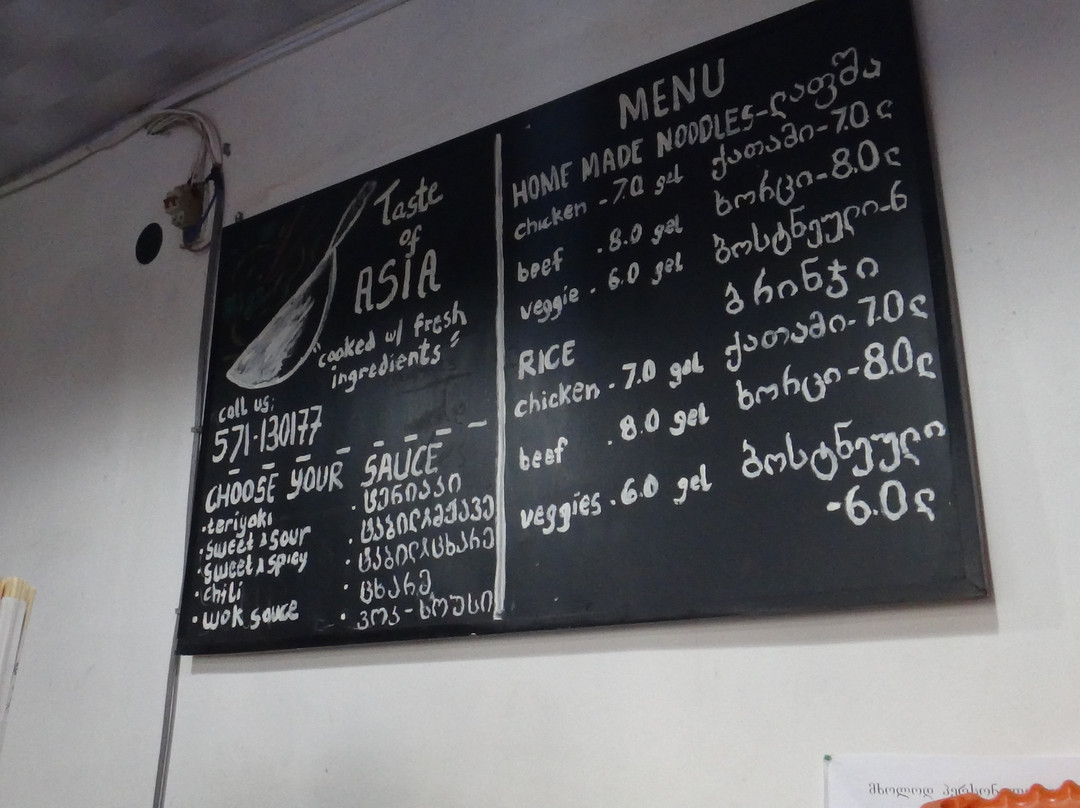 Taste
of
ASIA
"cooked w/ fresh
ingredients"
call us:
571-130177
CHOOSE YOUR SAUCE
· teriyaki · ტერიაკი
· sweet & sour · ტკბილ&მჟავე
· sweet & spicy · ტკბილ&ცხარე
· chili · ცხარე
· wok sauce · ვოკ-სოუსი
MENU
HOME MADE NOODLES-ლაფშა
chicken - 7.0 gel ქათამი-7.0 ლ
beef . 8.0 gel ხორცი-8.0ლ
veggie . 6.0 gel ბოსტნეული-6
RICE ბრინჯი
chicken . 7.0 gel ქათამი-7.0ლ
beef . 8.0 gel ხორცი-8.0ლ
veggies . 6.0 gel ბოსტნეული
-6.0ლ
მხოლოდ